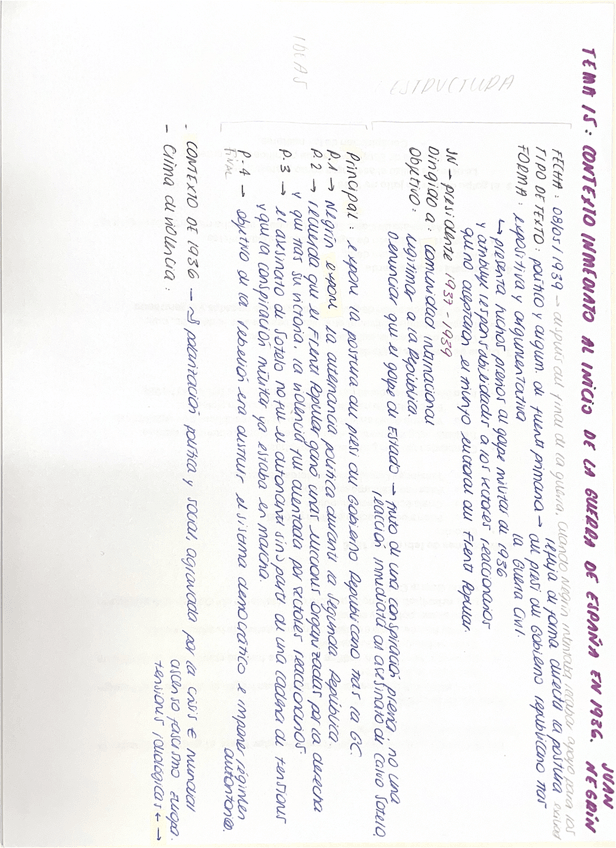 TEMA 15: CONTEXTO INMEDIATO AL INICIO DE LA GUERRA DE ESPAÑA EN 1936. JUAN NEGRÍN
FECHA: 08/05/1939 → después del final de la guerra, cuando Negrín intentaba recabar apoyo para los
TIPO DE TEXTO: político y argum. de fuente primaria → refleja de forma directa la postura
del presi del Gobierno republicano tras
la Guerra Civil.
FORMA: expositiva y argumentativa
↳ presenta hechos previos al golpe militar de 1936
y atribuye responsabilidades a los sectores reaccionarios
que no aceptaron el triunfo electoral del Frente Popular.
ESTRUCTURA
JN → presidente 1937-1939
Dirigido a: comunidad internacional
Objetivo: legitimar a la República.
denunciar que el golpe de Estado → fruto de una conspiración previa, no una
reacción inmediata al asesinato de Calvo Sotelo
IDEAS
Principal: expone la postura del presi del Gobierno Republicano tras la GC.
P.1 → Negrín expone la alternancia política durante la Segunda República
P.2 → recuerda que el Frente Popular ganó unas elecciones organizadas por la derecha
y que tras su victoria, la violencia fue alentada por sectores reaccionarios.
P.3 → el asesinato de Sotelo no fue el detonante sino parte de una cadena de tensiones
y que la conspiración militar ya estaba en marcha.
P.4 → objetivo de la rebelión era destruir el sistema democrático e imponer régimen
final autoritario.
- CONTEXTO DE 1936 → polarización política y social, agravada por la crisis E mundial
ascenso fascismo europa.
tensiones ideológicas ← →
- Clima de violencia: